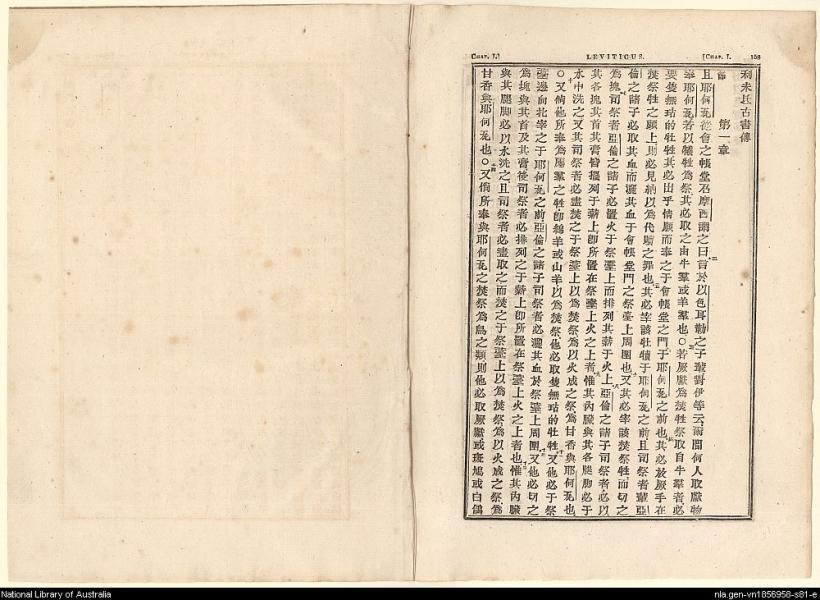 CHAP. I.] LEVITICUS. [CHAP. I. 158
利未氏古書傳
第一章
節且耶何瓦從會之帳堂召摩西謂之曰言於以色耳勒之子輩對伊等云爾間何人取獻物
奉耶何瓦若以犧牲為祭其必取之由牛羣或羊羣也○若厥獻為焚牲祭取自牛羣者必
要隻無玷的牡牲其必出乎情願而奉之于會帳堂之門于耶何瓦之前也其必放厥手在
焚祭牲之頭上則必見納以為代贖之罪也其必宰該牡犢于耶何瓦之前且司祭者輩亞
倫之諸子必取其血而灑其血于會帳堂門之祭臺上周圍也又其必宰該焚祭牲而切之
為塊司祭者亞倫之諸子必置火于祭臺上而排列其薪于火上亞倫之諸子司祭者必以
其各塊其首其膏皆擺列于薪上即所置在祭臺上火之上者惟其內臟與其各腿脚必于
水中洗之又其司祭者必盡焚之于祭臺上以為焚祭為以火成之祭為甘香與耶何瓦也
○又倘他所奉為屬羣之牲即綿羊或山羊以為焚祭他必取隻無玷的牡牲又他必于祭
臺邊向北宰之于耶何瓦之前亞倫之諸子司祭者必灑其血於祭臺上周圍又他必切之
為塊與其首及其膏後司祭者必排列之于薪上即所置在祭臺上火之上者也惟其內臟
與其腿脚必以水洗之且司祭者必盡取之而焚之于祭臺上以為焚祭為以火成之祭為
甘香與耶何瓦也○又倘所奉與耶何瓦之焚祭為鳥之類則他必取厥獻或斑鳩或白鴿
National Library of Australia
nla.gen-vn1856958-s81-e